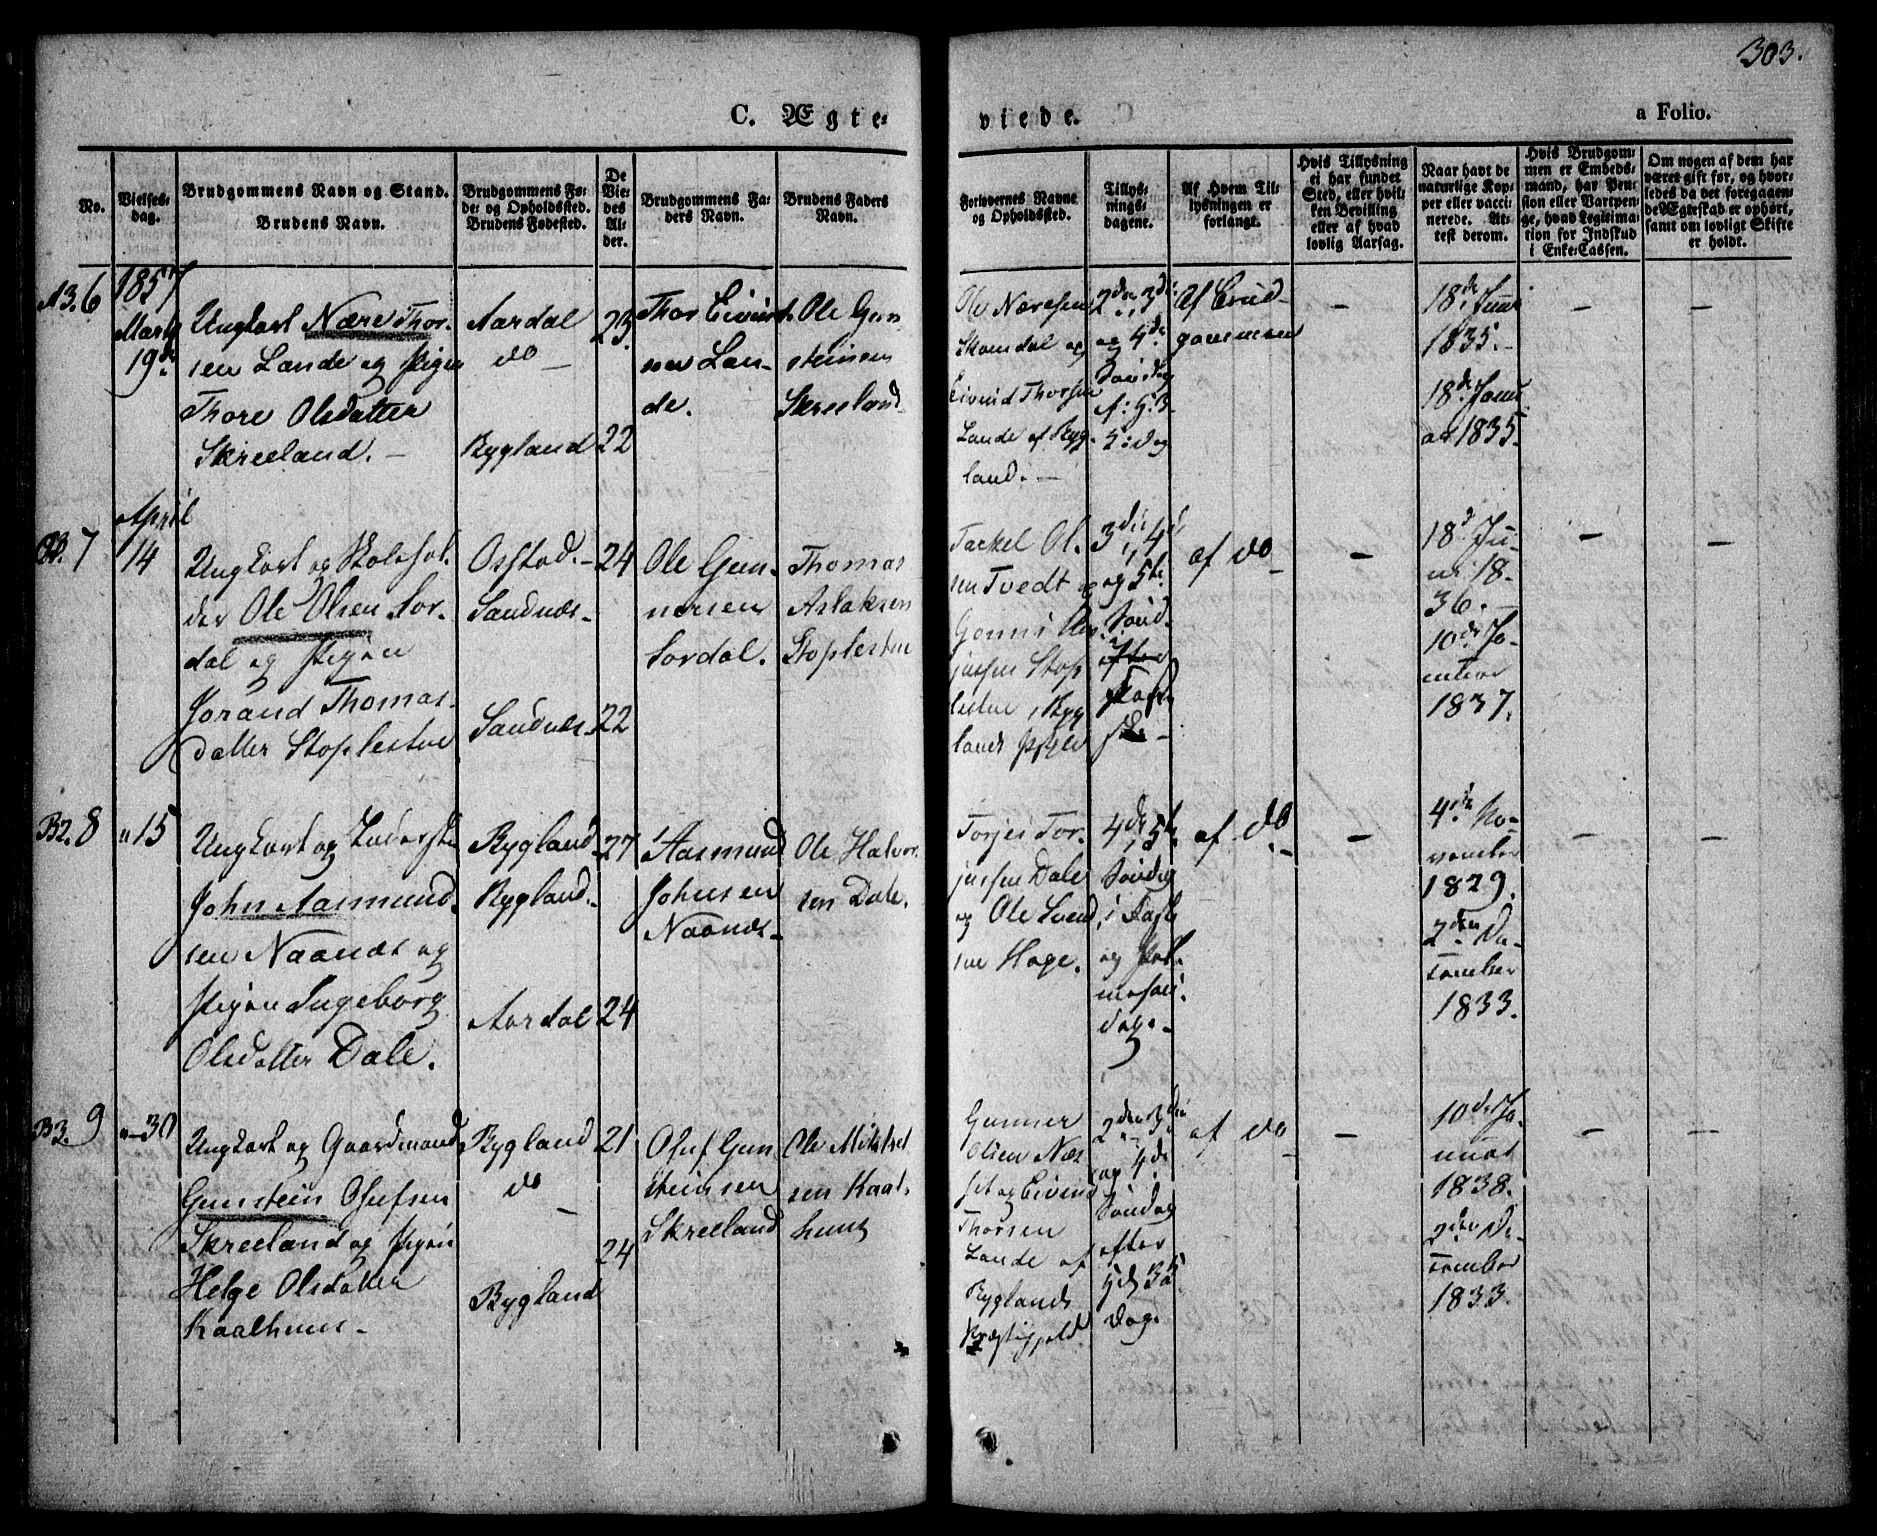 303.
C. Ægte-
viede.
a Folio.
No.
Vielses-
dag.
Brudgommens Navn og Stand.
Brudens Navn.
Brudgommens Fø-
de- og Opholdssted.
Brudens Fødested.
De
Vie-
des
Al-
der.
Brudgommens Fa-
ders Navn.
Brudens Faders
Navn.
Forlovernes Navne
og Opholdssted.
Tillys-
nings-
dagene.
Af Hvem Til-
lysningen er
forlangt.
Hvis Tillysning
ei har fundet
Sted, eller hvil-
ken Bevilling
eller af hvad
lovlig Aarsag.
Naar havt de
naturlige Kop-
per eller vacci-
nerede. At-
test derom.
Hvis Brudgom-
men er Embeds-
mand, har Pen-
sion eller Vartpen-
ge, hvad Legitima-
tion for Indskud
i Enke-Cassen.
Om nogen af dem har
været gift før, og hvor-
ledes da det foregaaen-
de Ægteskab er ophørt,
samt om lovligt Skifte
er holdt.
6
1857
Marts
19de
Ungkarl Nære Thor-
sen Lande og Pigen
Thore Olsdatter
Skreeland. -
Aardal
do -
Bygland
23.
22
Thor Eivind-
sen Lan-
de.
Ole Gun-
steinsen
Skreeland
Ole Næresen
Skomdal og
Eivind Thorsen
Lande af Byg-
land. -
2den, 3die
og 4de
Søndag
Af Brud-
gommen
-
18de Juni
1835. -
18de Janu-
ar 1835.
-
-
7
April
14
Ungkarl og Skolehol-
der Ole Olsen Sor-
dal og Pigen
Jorand Thomas-
datter Stoplesteen
Ossstad. -
Sandnæs -
Sandnæs -
24
22
Ole Gun-
nersen
Sordal.
Thomas
Aslaksen
Stoplesteen
Tarkel Ol-
sen Tvedt og
3die, 4de
og 5te
Sønd.
af do -
-
18de Ju-
ni 18-
36. -
10de Ja-
nuar
1837.
-
-
B2. 8
" 15
Ungkarl og
John Aasmund-
sen Naanæs og
Pigen Ingeborg
Olsdatter Dale.
Bygland
Bygland. -
Aardal
27
24
Aasmund
Johnsen
Naanæs -
Ole Halvor-
sen Dale.
Torjes Tor-
jussen Dale
og Ole Svend-
sen Hage.
4de, 5te
Søndag
i Faste
og Pal-
mesøn-
dage -
af do -
-
4de No-
vember
1829.
2den De-
cember
1833.
-
-
B3. 9
" - 30
Ungkarl og Gaardmand
Gunstein Olufsen
Skreeland og Pigen
Helge Olsdatter
Kaalhuus -
Bygland
do
-
Bygland
21
24
Oluf Gun-
steinsen
Skreeland
Ole Mikkel-
sen Kaal-
huus
Gunner
Olsen Næs-
set og Eivind
Thorsen
Lande af
Byglands
Præstegjeld
2den, 3die
og 4de
Søndag
efter
Paaske
Dag.
af do -
-
10de Ja-
nuar
1838.
2den De-
cember
1833.
-
-